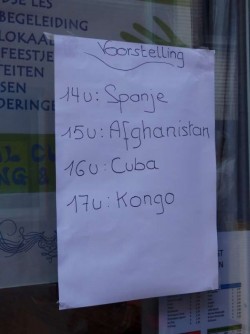 BEGELEIDING
LOKAAL
FEESTJE
TEITEN
SEN
DERINGE
Voorstelling
14u: Spanje
15u: Afghanistan
16u: Cuba
17u: Kongo